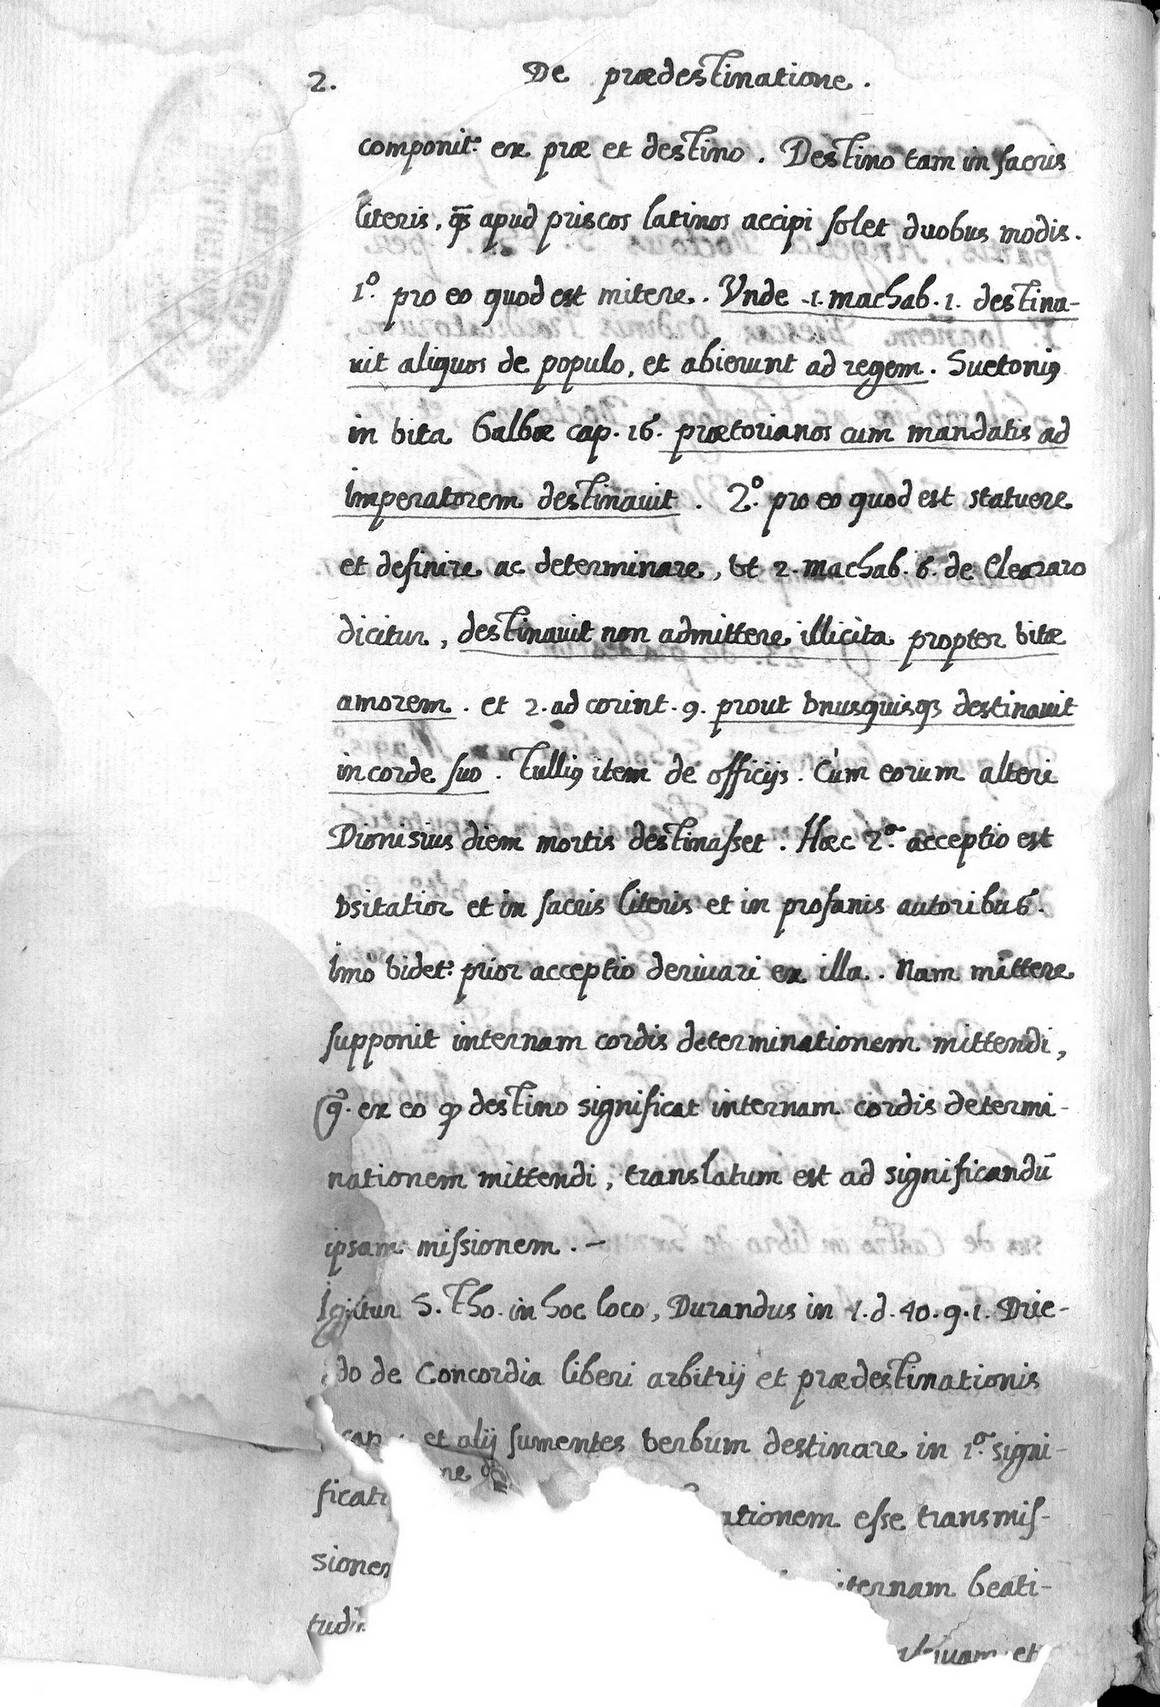 2. De prædestinatione.
componit.r ex præ et destino. Destino tam in sacris
literis, qm̄ apud priscos latinos accipi solet duobus modis.
1º. pro eo quod est mitere. Vnde .1. machab. 1. destina-
uit aliquos de populo, et abierunt ad regem. Suetoniꝯ
in vita Galbæ cap. 16. prætorianos cum mandatis ad
imperatorem destinauit. 2º. pro eo quod est statuere
et definire ac determinare, vt 2. machab. 6. de Eleazaro
dicitur, destinauit non admittere illicita propter vitæ
amorem. et 2. ad corint. 9. prout vnusquisqꝫ destinauit
in corde suo. Tulliꝯ item de officijs. Cùm eorum alteri
Dionisius diem mortis destinasset. Hæc 2ª. acceptio est
vsitatior et in sacris literis et in profanis autoribus.
Imò videt.r prior acceptio deriuari ex illa. Nam mittere
supponit internam cordis determinationem mittendi,
ex eo ꝙ destino significat internam cordis determi-
nationem mittendi, translatum est ad significandū
ipsam missionem. –
Igitur S. Tho. in hoc loco, Durandus in 1. d. 40. q. 1. Drie-
do de Concordia liberi arbitrij et prædestinationis
et alij sumentes verbum destinare in 1ª. signi-
ficati ne ationem esse transmis-
sionem æternam beati-
tudi
et